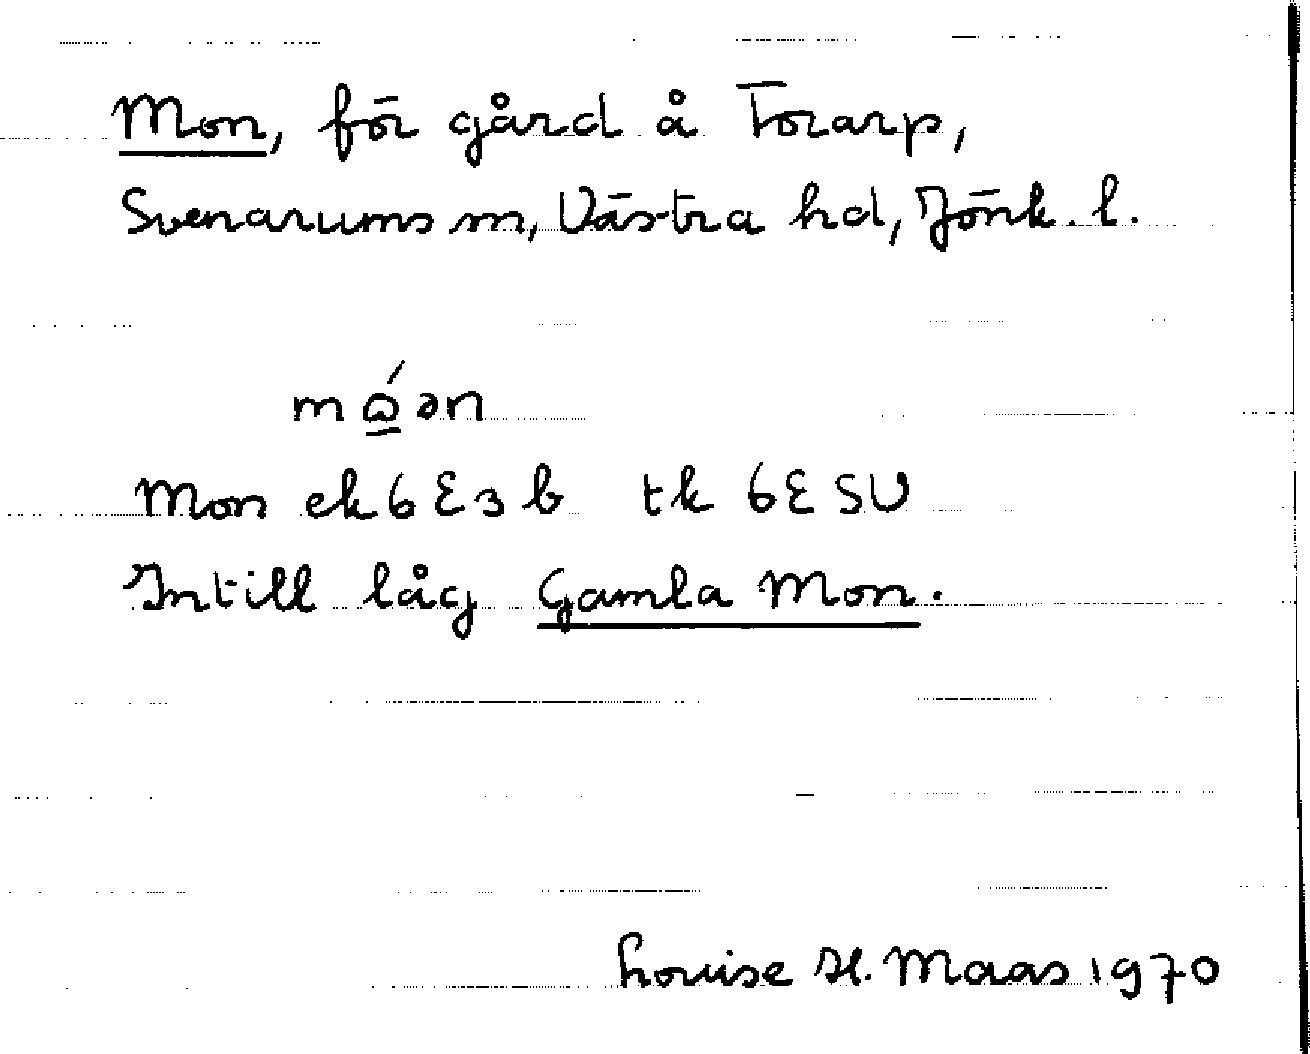 Mon, för gård å Torarp,
Svenarums sn, Västra hd, Jönk. l.
mɷ́ən
Mon ek 6 E 3 b tk 6 E SV
Intill låg Gamla Mon.
Louise H. Maas 1970